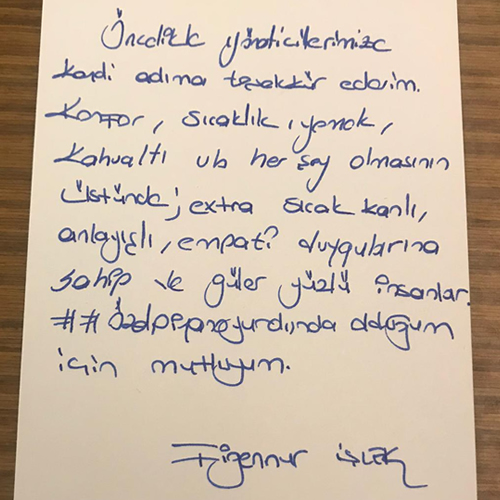 Öncelikle yöneticilerimize
kendi adıma teşekkür ederim.
Konfor, sıcaklık, yemek,
kahvaltı vb her şey olmasının
üstünde; extra sıcak kanlı,
anlayışlı, empati duygularına
sahip ve güler yüzlü insanlar.
için mutluyum.
işlek